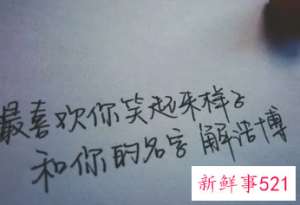 最喜欢你笑起来样子
和你的名字 解浩博
新鲜事521